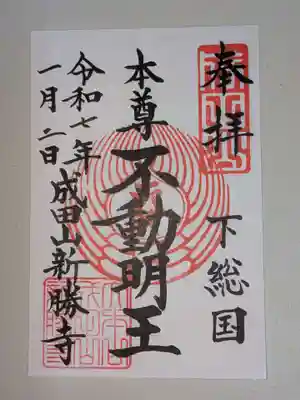 奉拝
下総国
本尊 不動明王
令和七年
一月二日
成田山新勝寺